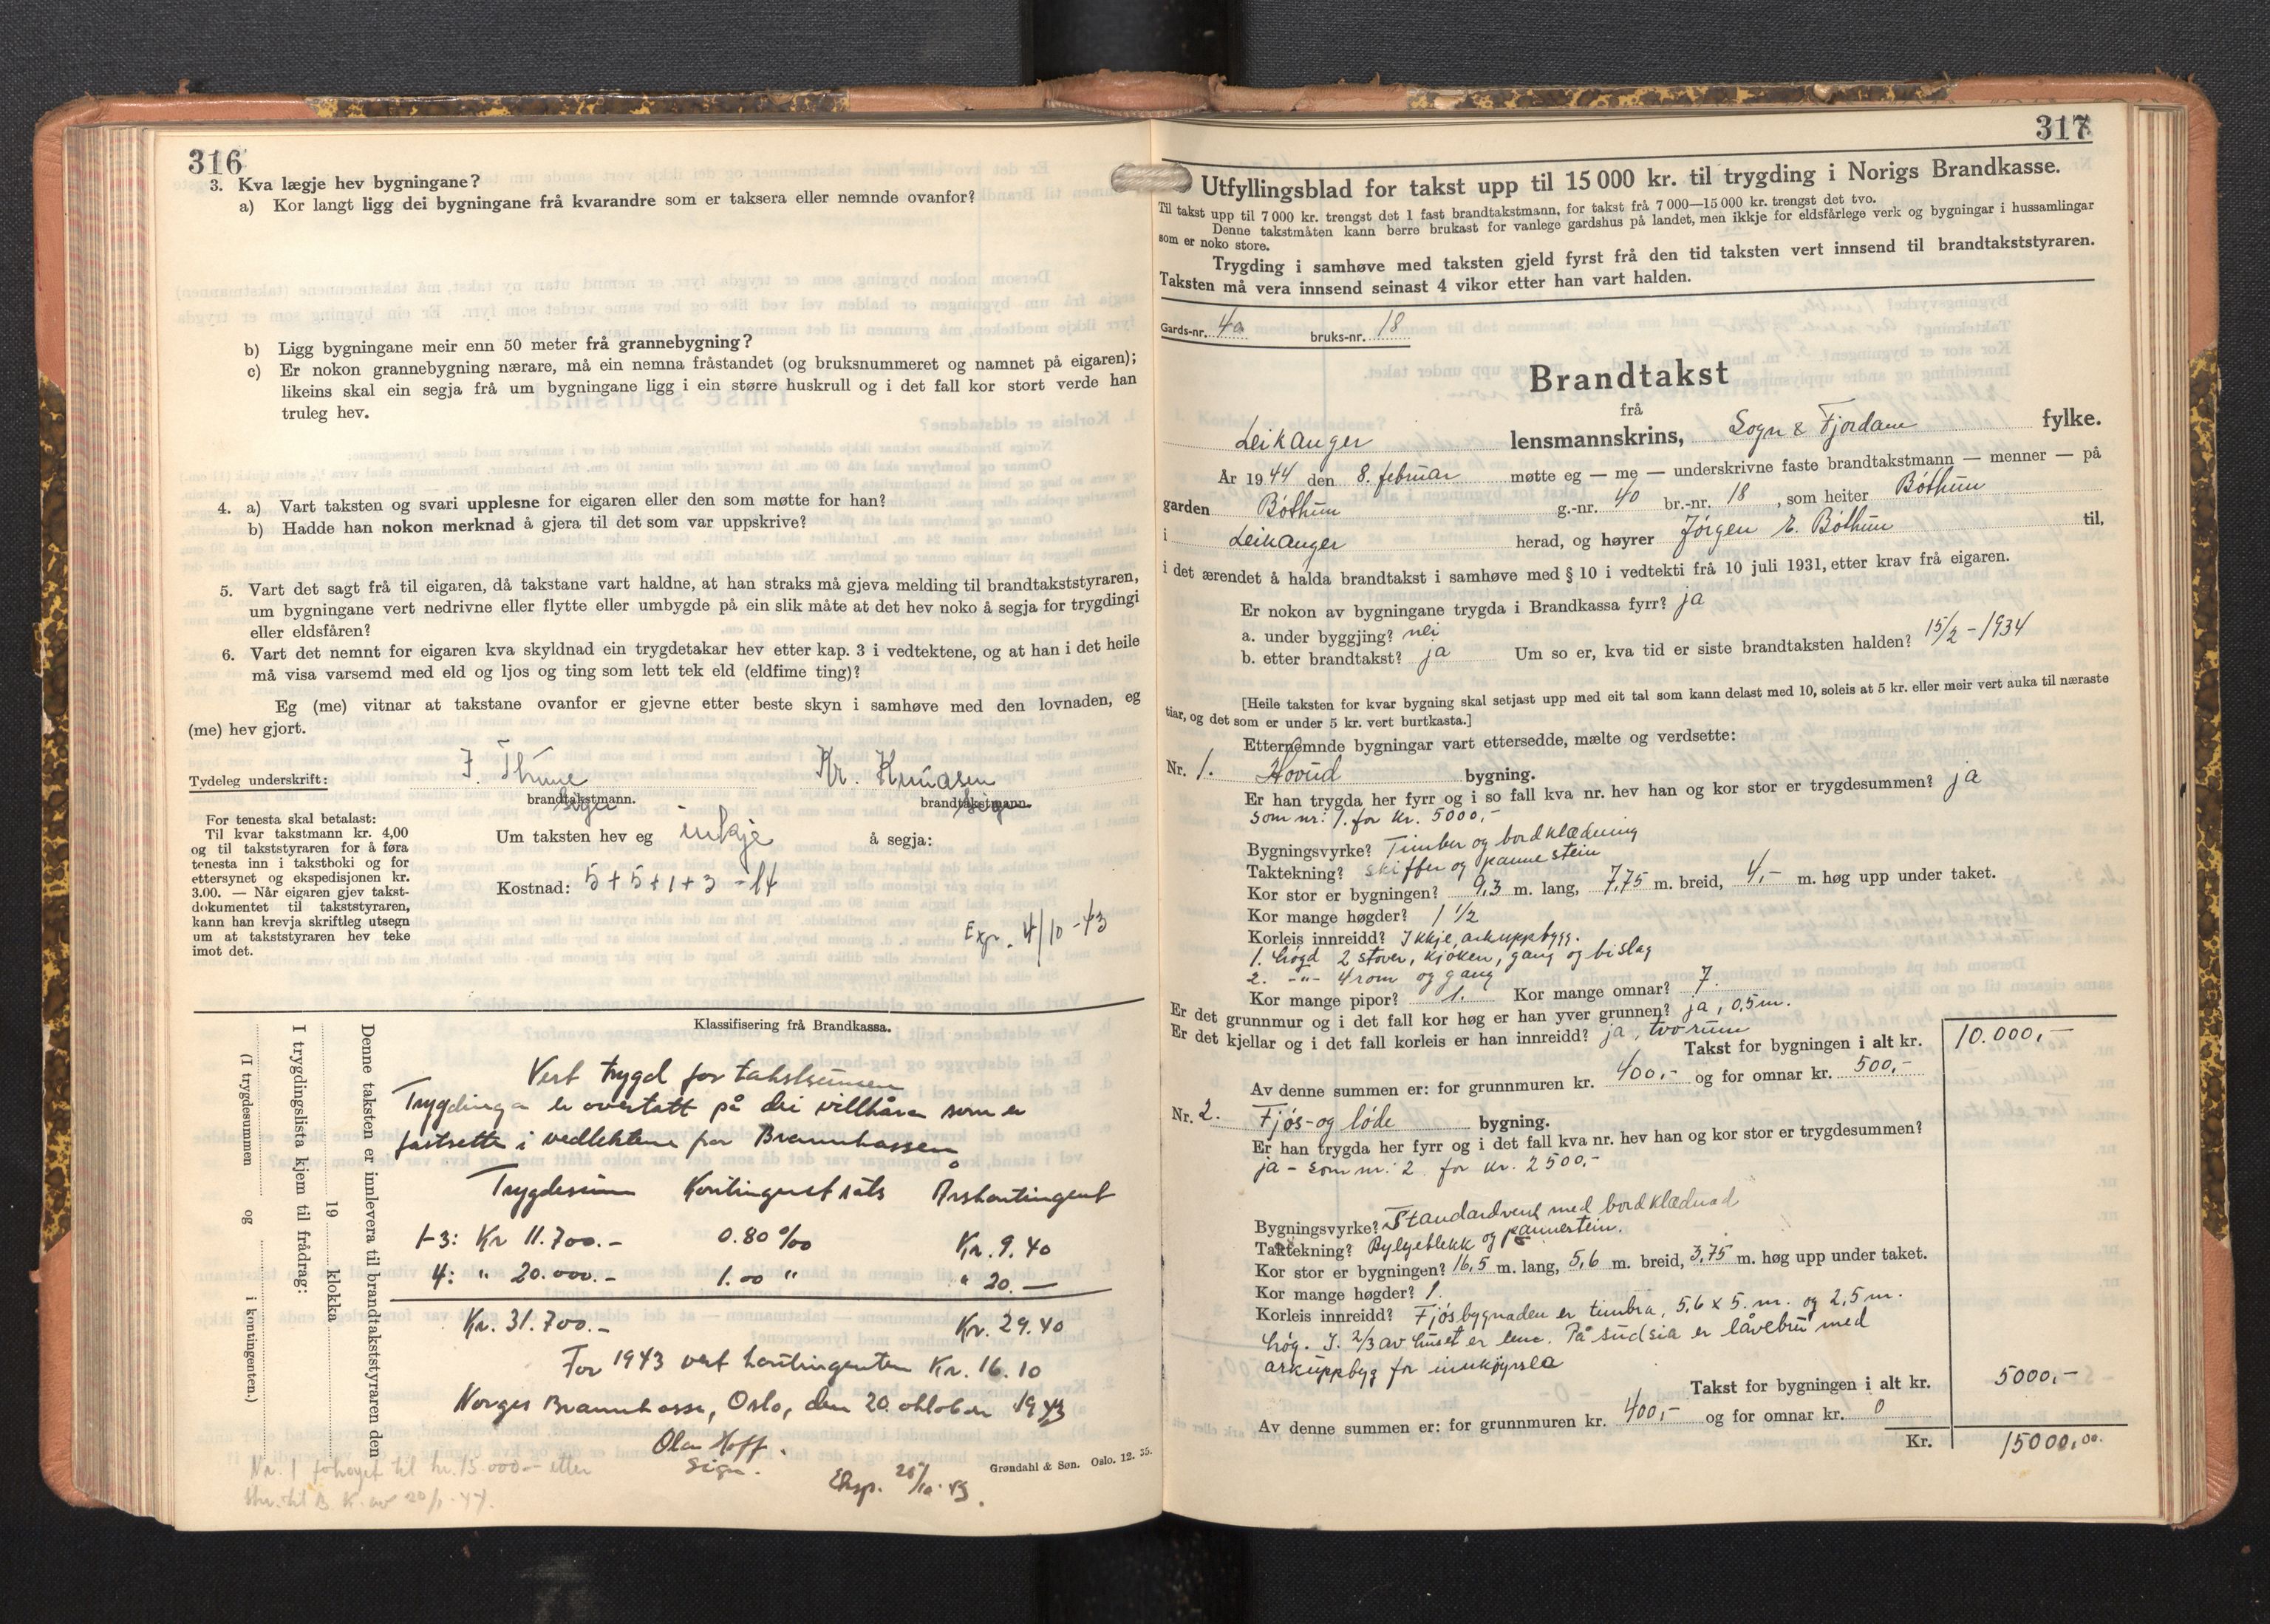 316
3. Kva lægje hev bygningane?
a) Kor langt ligg dei bygningane frå kvarandre som er taksera eller nemnde ovanfor?
b) Ligg bygningane meir enn 50 meter frå grannebygning?
c) Er nokon grannebygning nærare, må ein nemna fråstandet (og bruksnummeret og namnet på eigaren);
likeins skal ein segja frå um bygningane ligg i ein større huskrull og i det fall kor stort verde han
truleg hev.
4. a) Vart taksten og svari upplesne for eigaren eller den som møtte for han?
b) Hadde han nokon merknad å gjera til det som var uppskrive?
5. Vart det sagt frå til eigaren, då takstane vart haldne, at han straks må gjeva melding til brandtakststyraren,
um bygningane vert nedrivne eller flytte eller umbygde på ein slik måte at det hev noko å segja for trygdingi
eller eldsfåren?
6. Vart det nemnt for eigaren kva skyldnad ein trygdetakar hev etter kap. 3 i vedtektene, og at han i det heile
må visa varsemd med eld og ljos og ting som lett tek eld (eldfime ting)?
Eg (me) vitnar at takstane ovanfor er gjevne etter beste skyn i samhøve med den lovnaden, eg
(me) hev gjort.
Tydeleg underskrift: J. Thune Kr. Knudsen
brandtakstmann. brandtakstmann.
sign sign
For tenesta skal betalast:
Til kvar takstmann kr. 4,00
og til takststyraren for å føra
tenesta inn i takstboki og for
ettersynet og ekspedisjonen kr.
3.00. — Når eigaren gjev takst-
dokumentet til takststyraren,
kann han krevja skriftleg utsegn
um at takststyraren hev teke
imot det.
Um taksten hev eg inkje å segja:
Kostnad: 5 + 5 + 1 + 3 = 14
Exp. 4/10 - 43
Denne taksten er innlevera til brandtakststyraren den
19 klokka
I trygdingslista kjem til frådrag:
(I trygdesummen og i kontingenten.)
Klassifisering frå Brandkassa.
Vert trygd for takstsummen
Trygdinga er overtatt på dei villkåra som er
fastsette i vedtektene for Brannkassen.
Trygdesum Kontingentsats Årskontingent
1-3: Kr 11.700.- 0.80 ‰ Kr. 9.40
4: " 20.000.- 1.00 " " 20.—
Kr. 31.700.- Kr. 29.40
For 1943 vert kontingenten Kr. 16.10
Norges Brannkasse, Oslo, den 20. oktober 1943
Olav Hoff.
Sign.
Eksp. 25/10-43.
Nr. 1 forhøyet til kr. 15.000.- etter
skr. til B. K. av 20/1-44.
Grøndahl & Søn. Oslo. 12. 35.
317
Utfyllingsblad for takst upp til 15 000 kr. til trygding i Norigs Brandkasse.
Til takst upp til 7 000 kr. trengst det 1 fast brandtakstmann, for takst frå 7 000—15 000 kr. trengst det tvo.
Denne takstmåten kann berre brukast for vanlege gardshus på landet, men ikkje for eldsfårlege verk og bygningar i hussamlingar
som er noko store.
Trygding i samhøve med taksten gjeld fyrst frå den tid taksten vert innsend til brandtakststyraren.
Taksten må vera innsend seinast 4 vikor etter han vart halden.
Gards-nr. 40 bruks-nr. 18
Brandtakst
frå
Leikanger lensmannskrins, Sogn & Fjordane fylke.
År 1944 den 8. februar møtte eg — me — underskrivne faste brandtakstmann — menner — på
garden Bøthun g.-nr. 40 br.-nr. 18, som heiter Bøthun
i Leikanger herad, og høyrer Jørgen E. Bøthun til,
i det ærendet å halda brandtakst i samhøve med § 10 i vedtekti frå 10 juli 1931, etter krav frå eigaren.
Er nokon av bygningane trygda i Brandkassa fyrr? ja
a. under byggjing? nei
b. etter brandtakst? ja Um so er, kva tid er siste brandtaksten halden? 15/2 - 1934
[Heile taksten for kvar bygning skal setjast upp med eit tal som kann delast med 10, soleis at 5 kr. eller meir vert auka til næraste
tiar, og det som er under 5 kr. vert burtkasta.]
Etternemnde bygningar vart ettersedde, mælte og verdsette:
Nr. 1. Hovud bygning.
Er han trygda her fyrr og i so fall kva nr. hev han og kor stor er trygdesummen? ja
som nr: 1. for kr. 5000,-
Bygningsvyrke? Timber og bordklædning
Taktekning? skiffer og pannestein
Kor stor er bygningen? 9,3 m. lang, 7,75 m. breid, 4,- m. høg upp under taket.
Kor mange høgder? 1 1/2
Korleis innreidd? Ikkje arkuppbygg.
1. høgd 2 stover, kjøken, gang og bislag
2. -"- 4 rom og gang
Kor mange pipor? 1. Kor mange omnar? 7.
Er det grunnmur og i det fall kor høg er han yver grunnen? ja, 0,5 m.
Er det kjellar og i det fall korleis er han innreidd? ja, tvo rum
Takst for bygningen i alt kr. 10.000,-
Av denne summen er: for grunnmuren kr. 400,- og for omnar kr. 500,-
Nr. 2. Fjøs- og løde bygning.
Er han trygda her fyrr og i det fall kva nr. hev han og kor stor er trygdesummen?
ja - som nr: 2 for kr. 2500,-
Bygningsvyrke? Standardverk med bordklædnad
Taktekning? Bylgeblekk og pannestein.
Kor stor er bygningen? 16,5 m. lang, 5,6 m. breid, 3,75 m. høg upp under taket.
Kor mange høgder? 1.
Korleis innreidd? Fjøsbygnaden er timbra, 5,6 x 5. m. og 2,5 m.
høg. I. 2/3 av huset er løue. På sudsia er låvebru med
arkuppbygg for innkjøyrsla
Takst for bygningen i alt kr. 5000,-
Av denne summen er: for grunnmuren kr. 400,- og for omnar kr. 0
Kr. 15000,00.